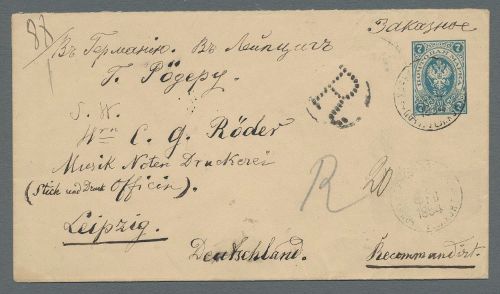 88
Заказное
Въ Германію. Въ Лейпцигъ
Г. Рёдеру
S. W.
Hrn C. G. Röder
Musik Noten Druckerei
(Stich und Druck Officin).
Leipzig.
Deutschland.
Recommandirt.
R
R 20
7 7
7 7
1884